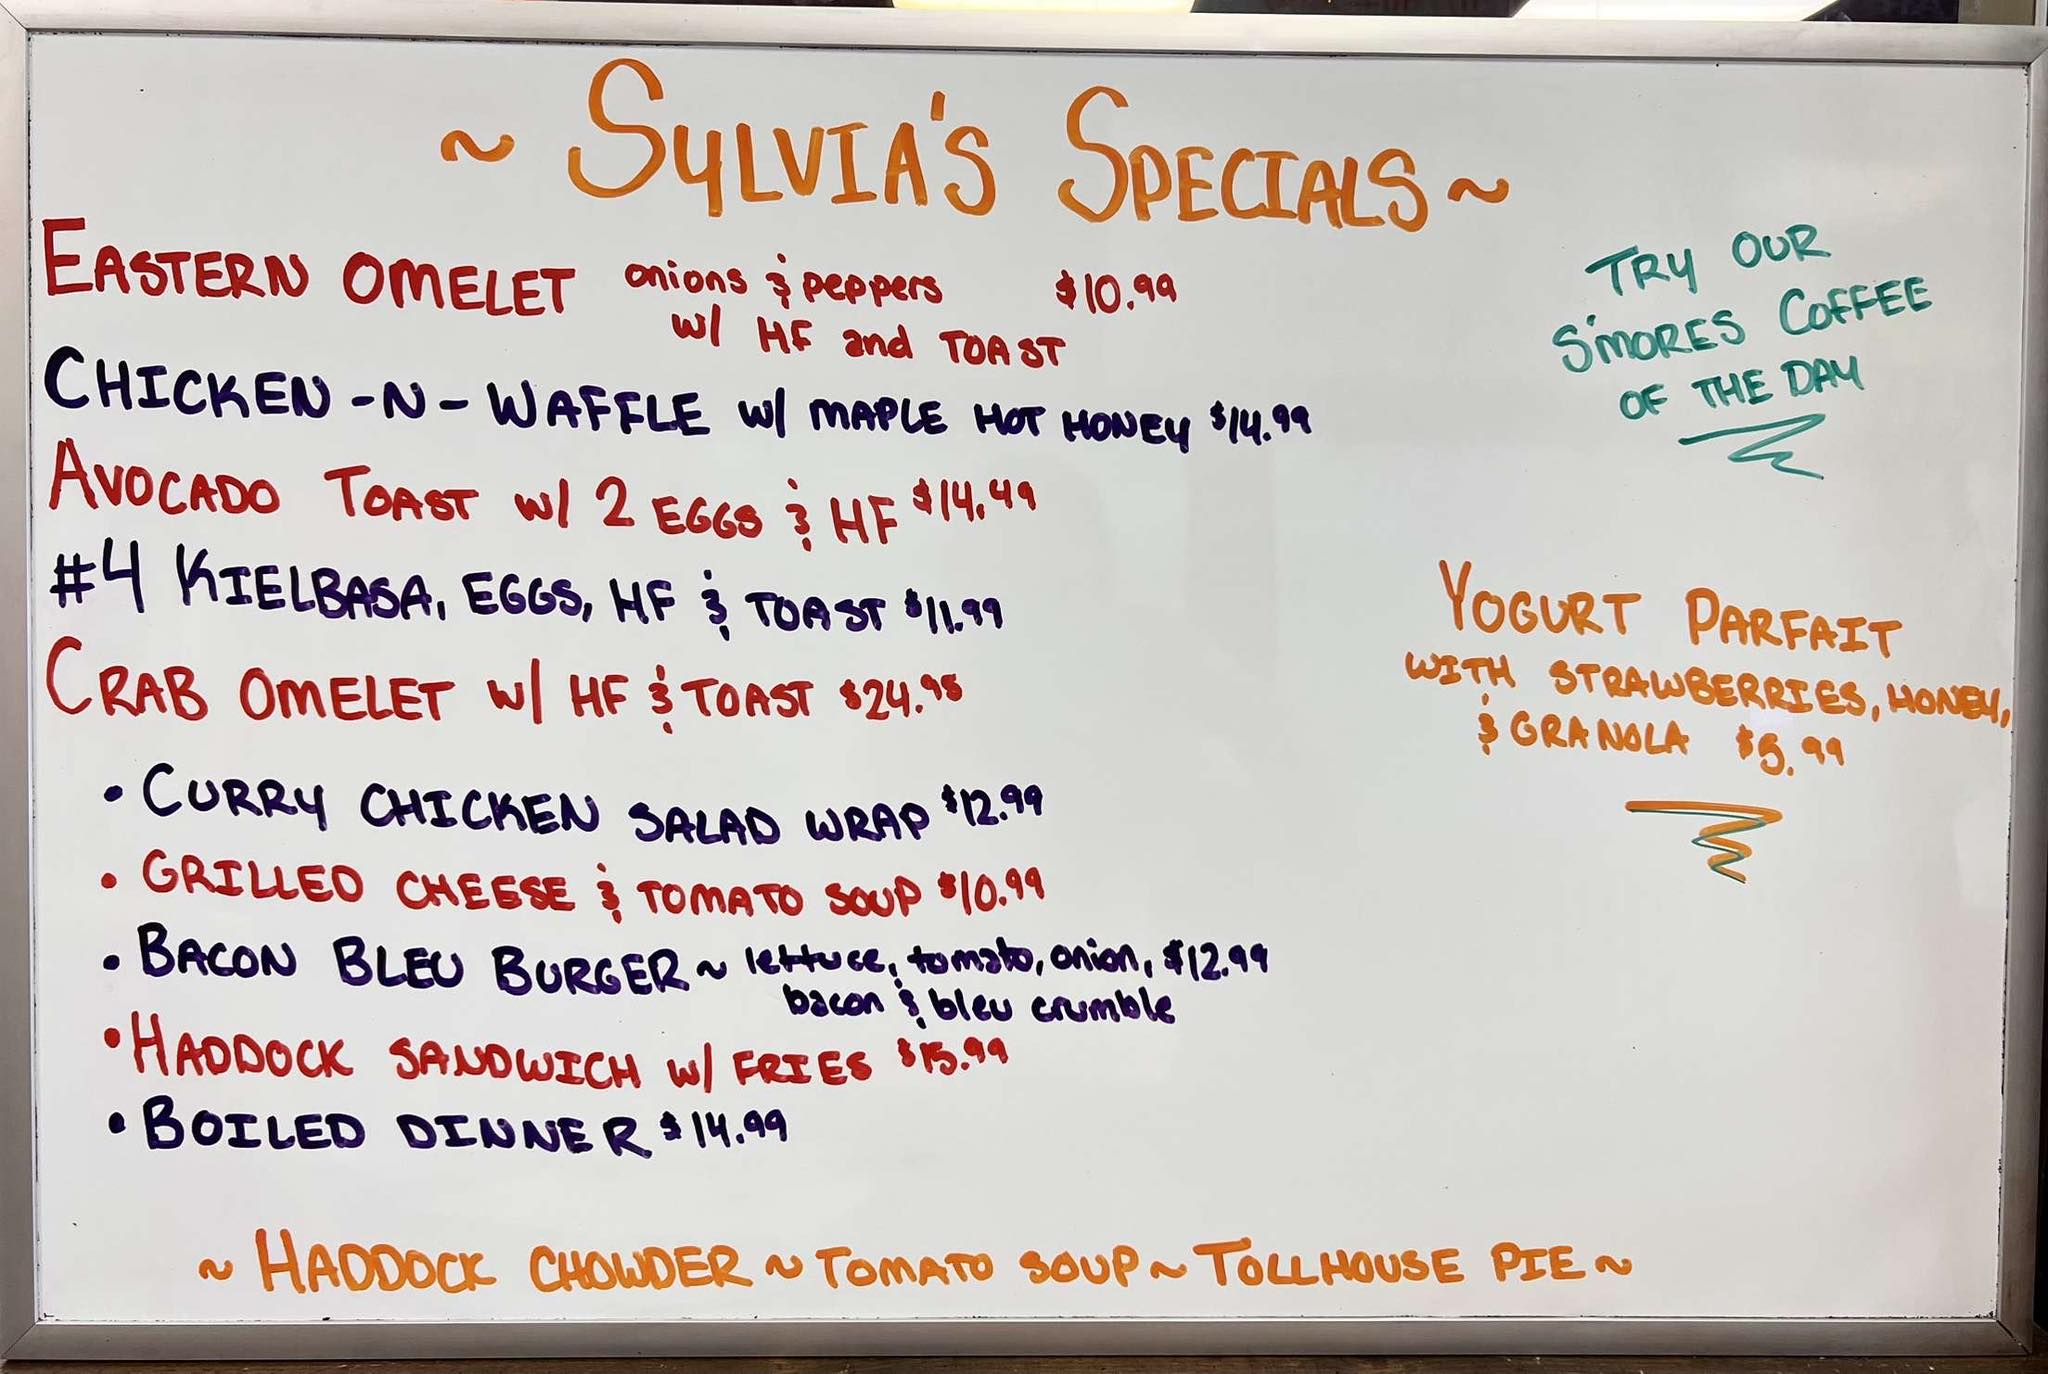 ~ SYLVIA'S SPECIALS ~
EASTERN OMELET onions & peppers $10.99
w/ HF and TOAST
CHICKEN-N-WAFFLE w/ MAPLE HOT HONEY $14.99
AVOCADO TOAST w/ 2 EGGS & HF $14.49
#4 KIELBASA, EGGS, HF & TOAST $11.99
CRAB OMELET w/ HF & TOAST $24.95
• CURRY CHICKEN SALAD WRAP $12.99
• GRILLED CHEESE & TOMATO SOUP $10.99
• BACON BLEU BURGER ~ lettuce, tomato, onion, $12.99
bacon & bleu crumble
• HADDOCK SANDWICH w/ FRIES $15.99
• BOILED DINNER $14.99
TRY OUR
S'MORES COFFEE
OF THE DAY
YOGURT PARFAIT
WITH STRAWBERRIES, HONEY,
& GRANOLA $5.99
~ HADDOCK CHOWDER ~ TOMATO SOUP ~ TOLLHOUSE PIE ~